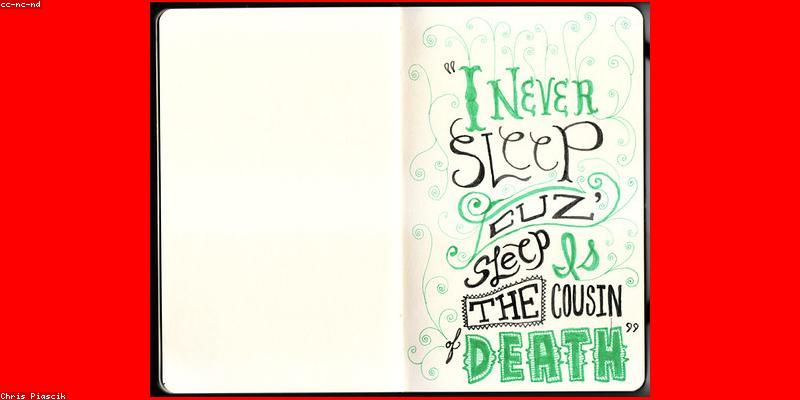 cc-nc-nd
“I NEVER
SLEEP
CUZ’
SLeeP Is
THE COUSIN
of DEATH”
Chris Piascik